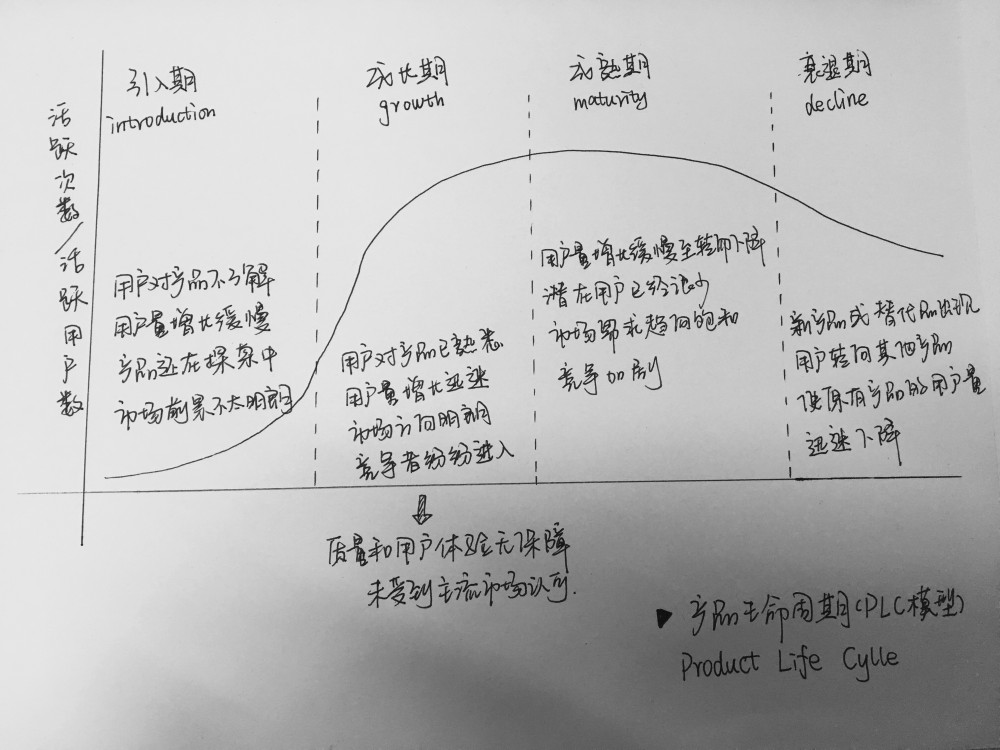 引入期
introduction
成长期
growth
成熟期
maturity
衰退期
decline
活跃次数/活跃用户数
用户对产品不了解
用户量增长缓慢
产品还在探索中
市场前景不太明朗
用户对产品已熟悉
用户量增长迅速
市场方向明朗
竞争者纷纷进入
用户量增长缓慢至转而下降
潜在用户已经很少
市场需求趋向饱和
竞争加剧
新产品或替代品出现
用户转向其他产品
使原有产品的用户量
迅速下降
质量和用户体验无保障
未受到主流市场认可.
▶ 产品生命周期(PLC模型)
Product Life Cylle